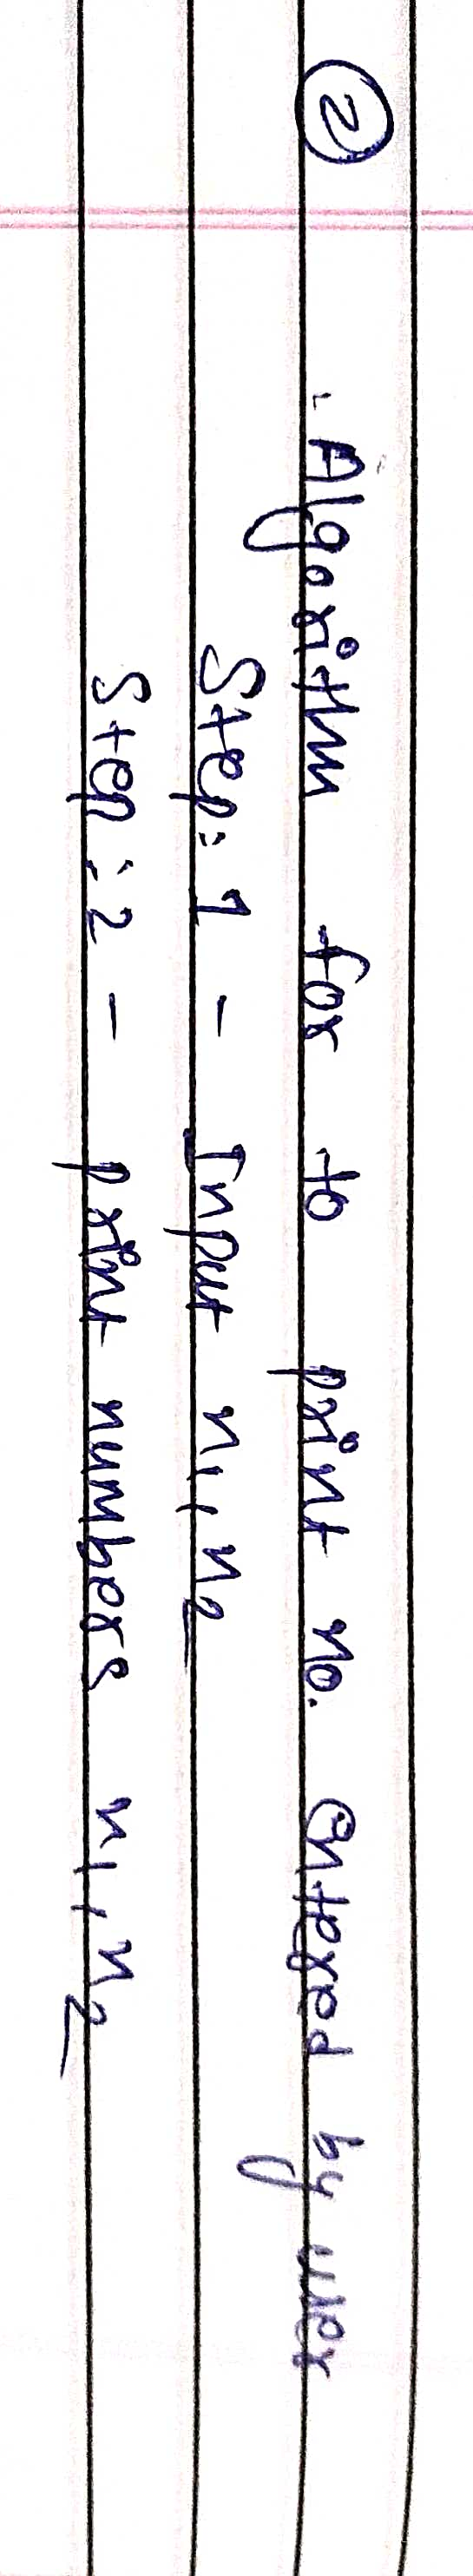 ② Algorithm for to print no. entered by user
Step:1 - Input n1, n2
Step:2 - print numbers n1, n2